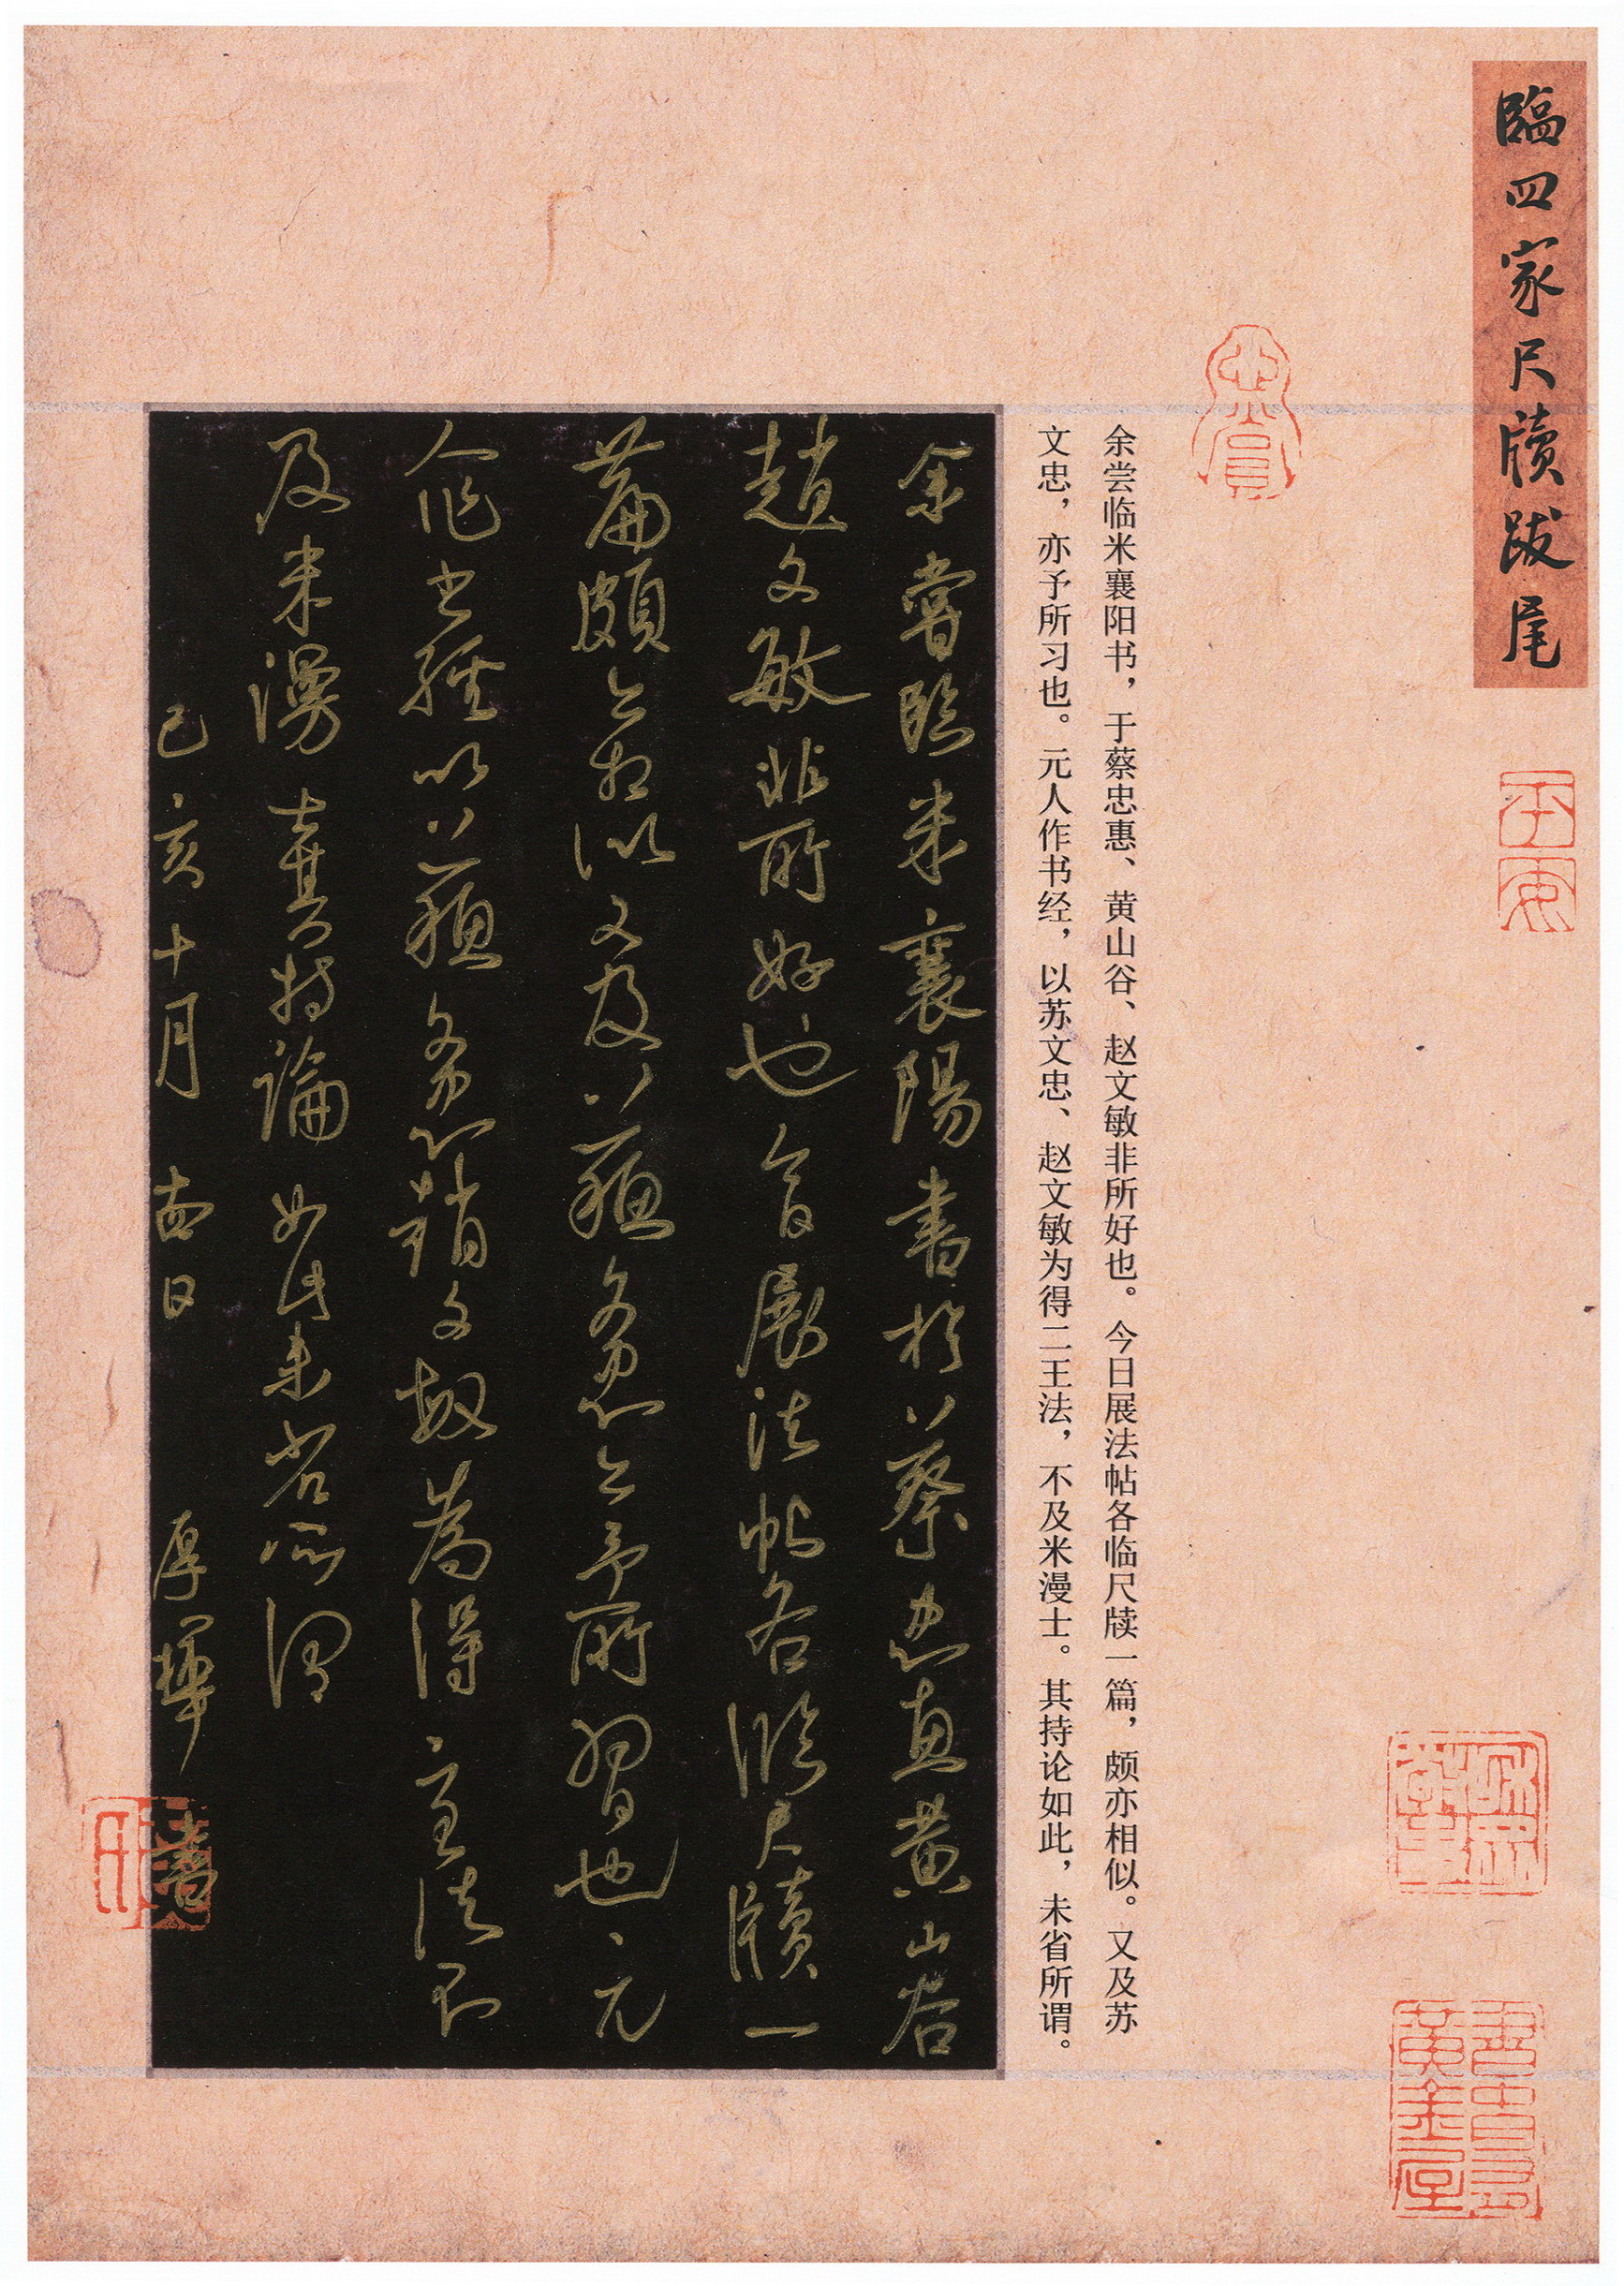 臨四家尺牘跋尾
平安
余尝临米襄阳书，于蔡忠惠、黄山谷、赵文敏非所好也。今日展法帖各临尺牍一篇，颇亦相似。又及苏
文忠，亦予所习也。元人作书经，以苏文忠、赵文敏为得二王法，不及米漫士。其持论如此，未省所谓。
余嘗臨米襄陽書於蔡忠惠黄山谷
趙文敏非所好也今日展法帖各臨尺牘一
篇頗亦相似又及蘇文忠亦予所習也元
人作書經以蘇文忠趙文敏為得二王法不
及米漫士其持論如此未省所謂
己亥十月 日 厚華書